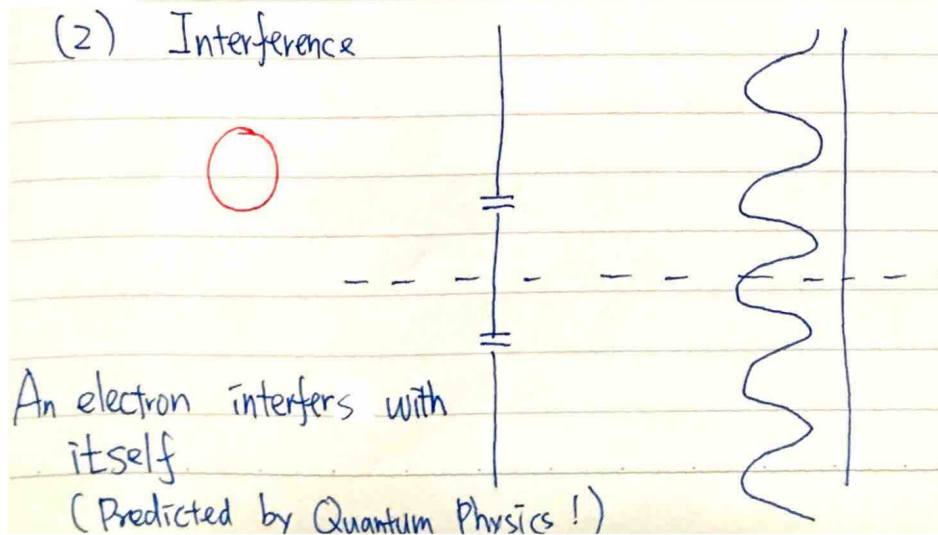 (2) Interference
An electron interfers with
itself
(Predicted by Quantum Physics!)